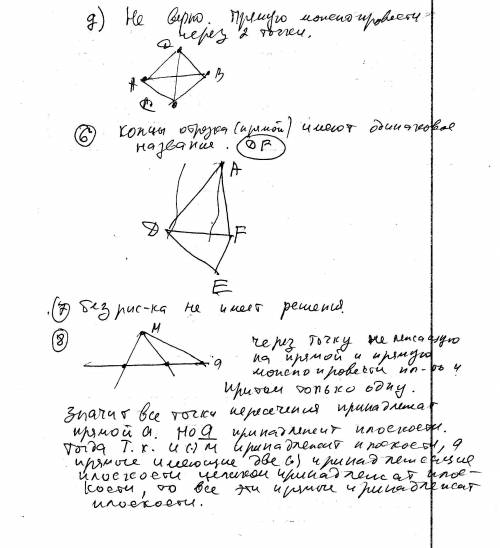 д) Не верно. Прямую можно провести
через 2 точки.
D
A
B
C
6 Концы отрезка (прямой) имеют одинаковое
название. DF
A
D
F
E
7 Без рис-ка не имеет решения.
8
M
a
через точку не лежащую
на прямой и прямую
можно провести пл-ть и
притом только одну.
Значит все точки пересечения принадлежат
прямой a. Но a принадлежит плоскости.
Тогда т.к. и (·) M принадлежит плоскости, а
прямые имеющие две (·) принадлежащие
плоскости целиком принадлежат плос-
кости, то все эти прямые принадлежат
плоскости.